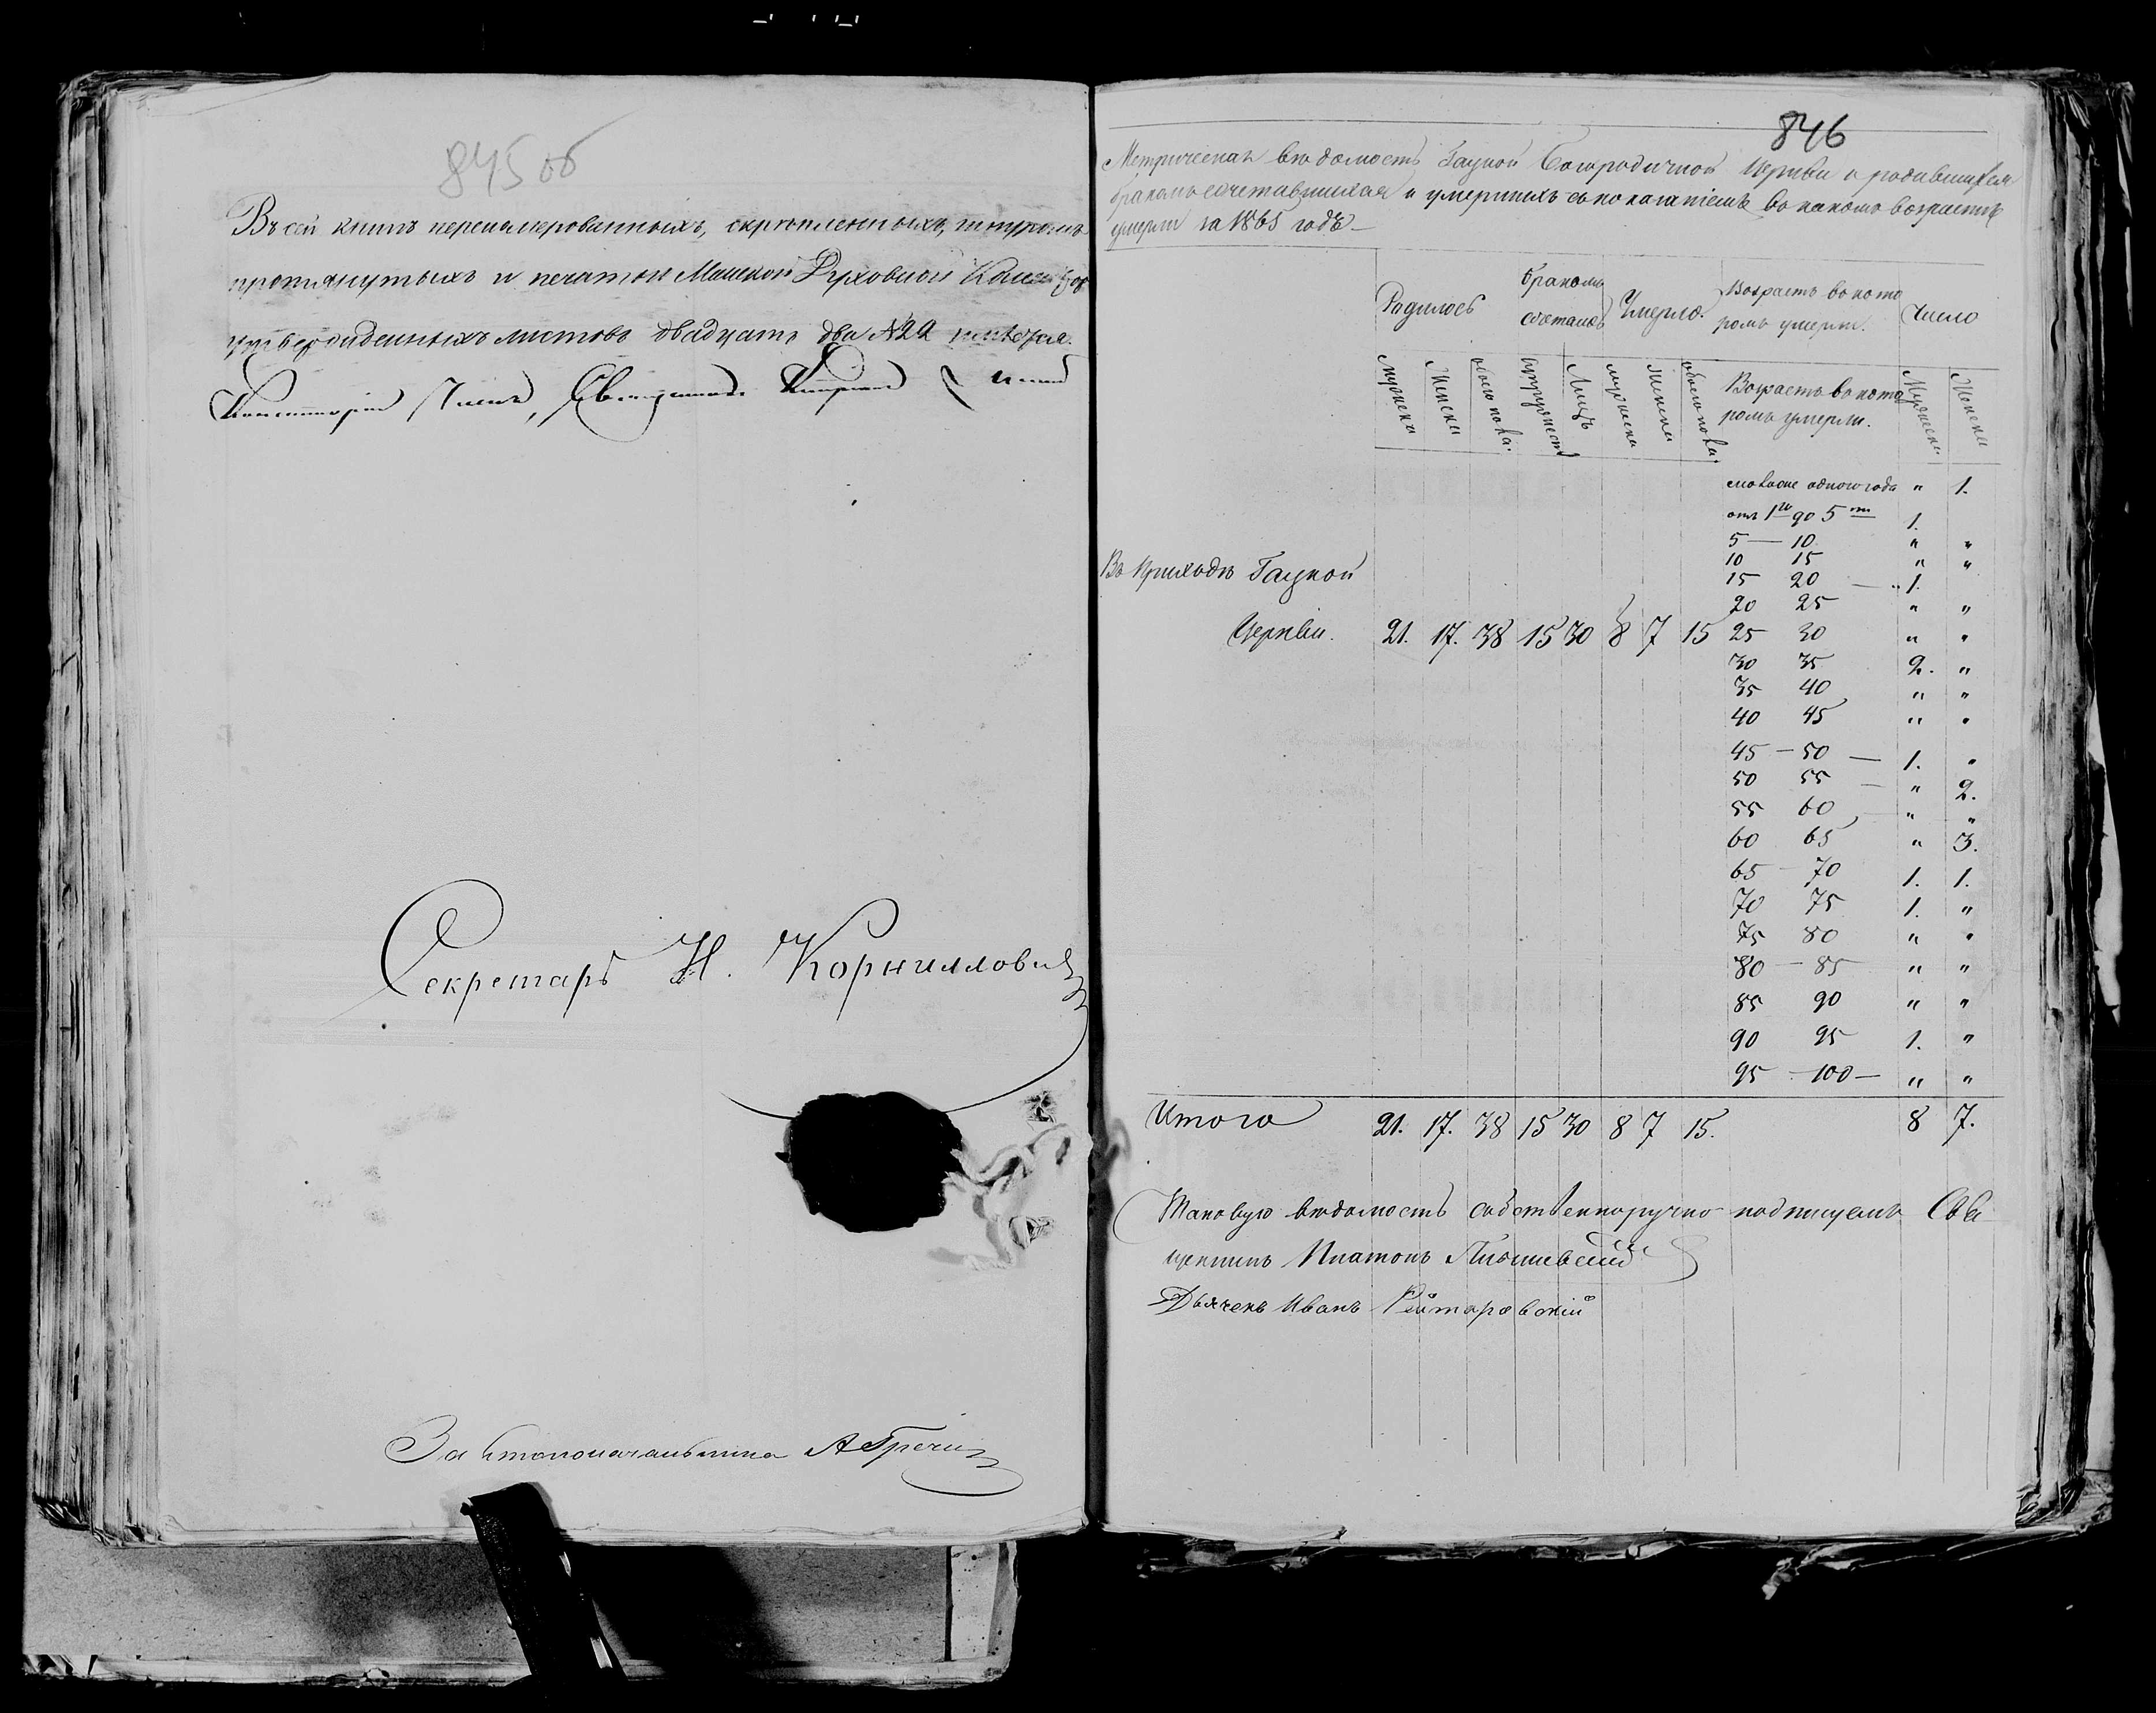 845 об
Въ сей книгѣ перенумерованныхъ, скрѣпленныхъ, шнуромъ
протянутыхъ и печатью Минской Духовной
утвержденныхъ листовъ двадцать два №22 имѣется.
Консисторіи Членъ, Священникъ
Секретарь Н. Корнилловичъ
За Столоначальника А Гречи
846
Метрическая вѣдомость Гацкой Богородичной Церкви о родившихся
бракомъ сочетавшихся и умершихъ съ показаніемъ въ какомъ возрастѣ
умерли за 1865 годъ
Родилось
бракомъ сочеталось
Умерло.
Возрастъ въ кото
ромъ умерли.
Число
Мужеска
Женска
обоего пола.
супружествъ
Лицъ
мужеска
женска
обоего пола
Возрастъ въ кото
ромъ умерли.
Мужеска
Женска
моложе одного года " 1.
отъ 1го до 5ти 1. "
5 — 10 " "
10 15 " "
15 20 — " 1.
20 25 " "
Въ приходѣ Гацкой
Церкви. 21. 17. 38 15 30 8 7 15 25 30 " "
30 35 2. "
35 40 " "
40 45 " "
45 — 50 — 1. "
50 55 — " 2.
55 60 — " "
60 65 " 3.
65 70 1. 1.
70 75 1. "
75 80 " "
80 — 85 " "
85 90 " "
90 95 1. "
95 — 100 — " "
Итого 21. 17. 38 15 30 8 7 15. 8 7.
Таковую вѣдомость собственноручно подписуемъ Свя
щенникъ Платонъ
Дьячекъ Иванъ Рейтаровскій